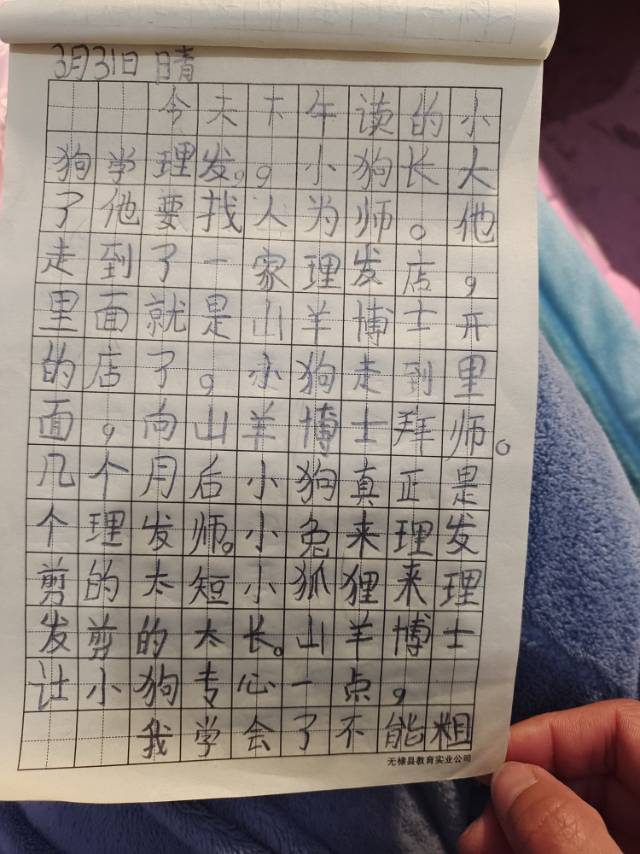 3月31日 晴
今天下午读的小
狗学理发。,小狗长大
了他要找人为师。他
走到了一家理发店,
里面就是山羊博士开
的店了,小狗走到里
面,向山羊博士拜师。
几个月后小狗真正是
个理发师。小兔来理发
剪的太短小狐狸来理
发剪的太长。山羊博士
让小狗专心一点,
我学会了不能粗
无棣县教育实业公司